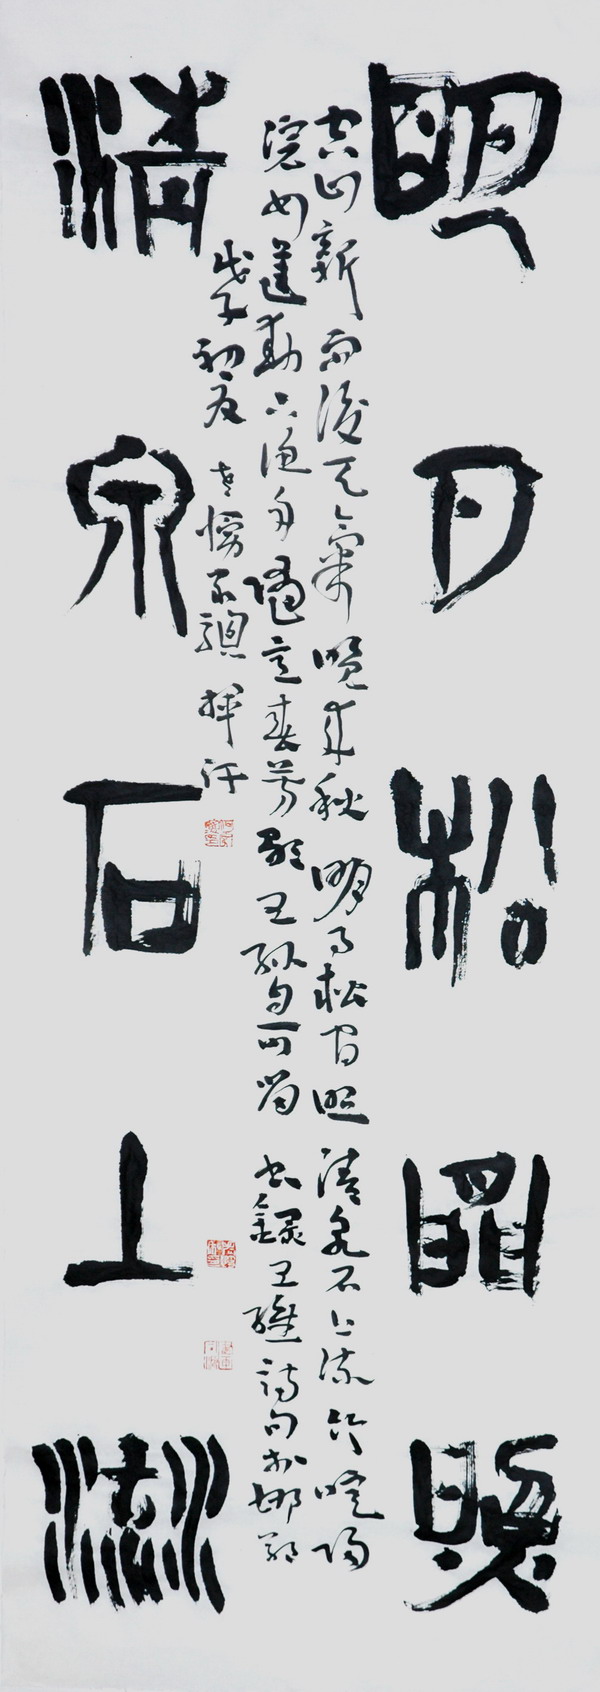 明月松間照
空山新雨後天氣晚來秋明月松間照清泉石上流竹喧歸
浣女蓮動下漁舟隨意春芳歇王孫自可留 錄王維詩句於
戊子初夏 揮汗
清泉石上流